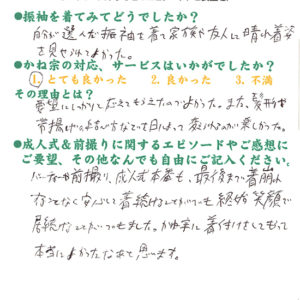 ●振袖を着てみてどうでしたか？
自分が選んだ振袖を着て家族や友人に晴れ着姿
を見せられてよかった。
●かね宗の対応、サービスはいかがでしたか？
1. とても良かった 2. 良かった 3. 不満
その理由とは？
要望にしっかりと応えてもらえたのでよかった。また、髪形や
帯揚げの結び方などで日によって変えられるのが楽しかった。
●成人式＆前撮りに関するエピソードやご感想に
ご要望、その他なんでも自由にご記入ください。
パーティーや前撮り、成人式本番も、最後まで着崩れ
することなく安心して着続けることができても終始笑顔で
居続けることができました。かね宗に着付けをしてもらって
本当によかったなあと思います。